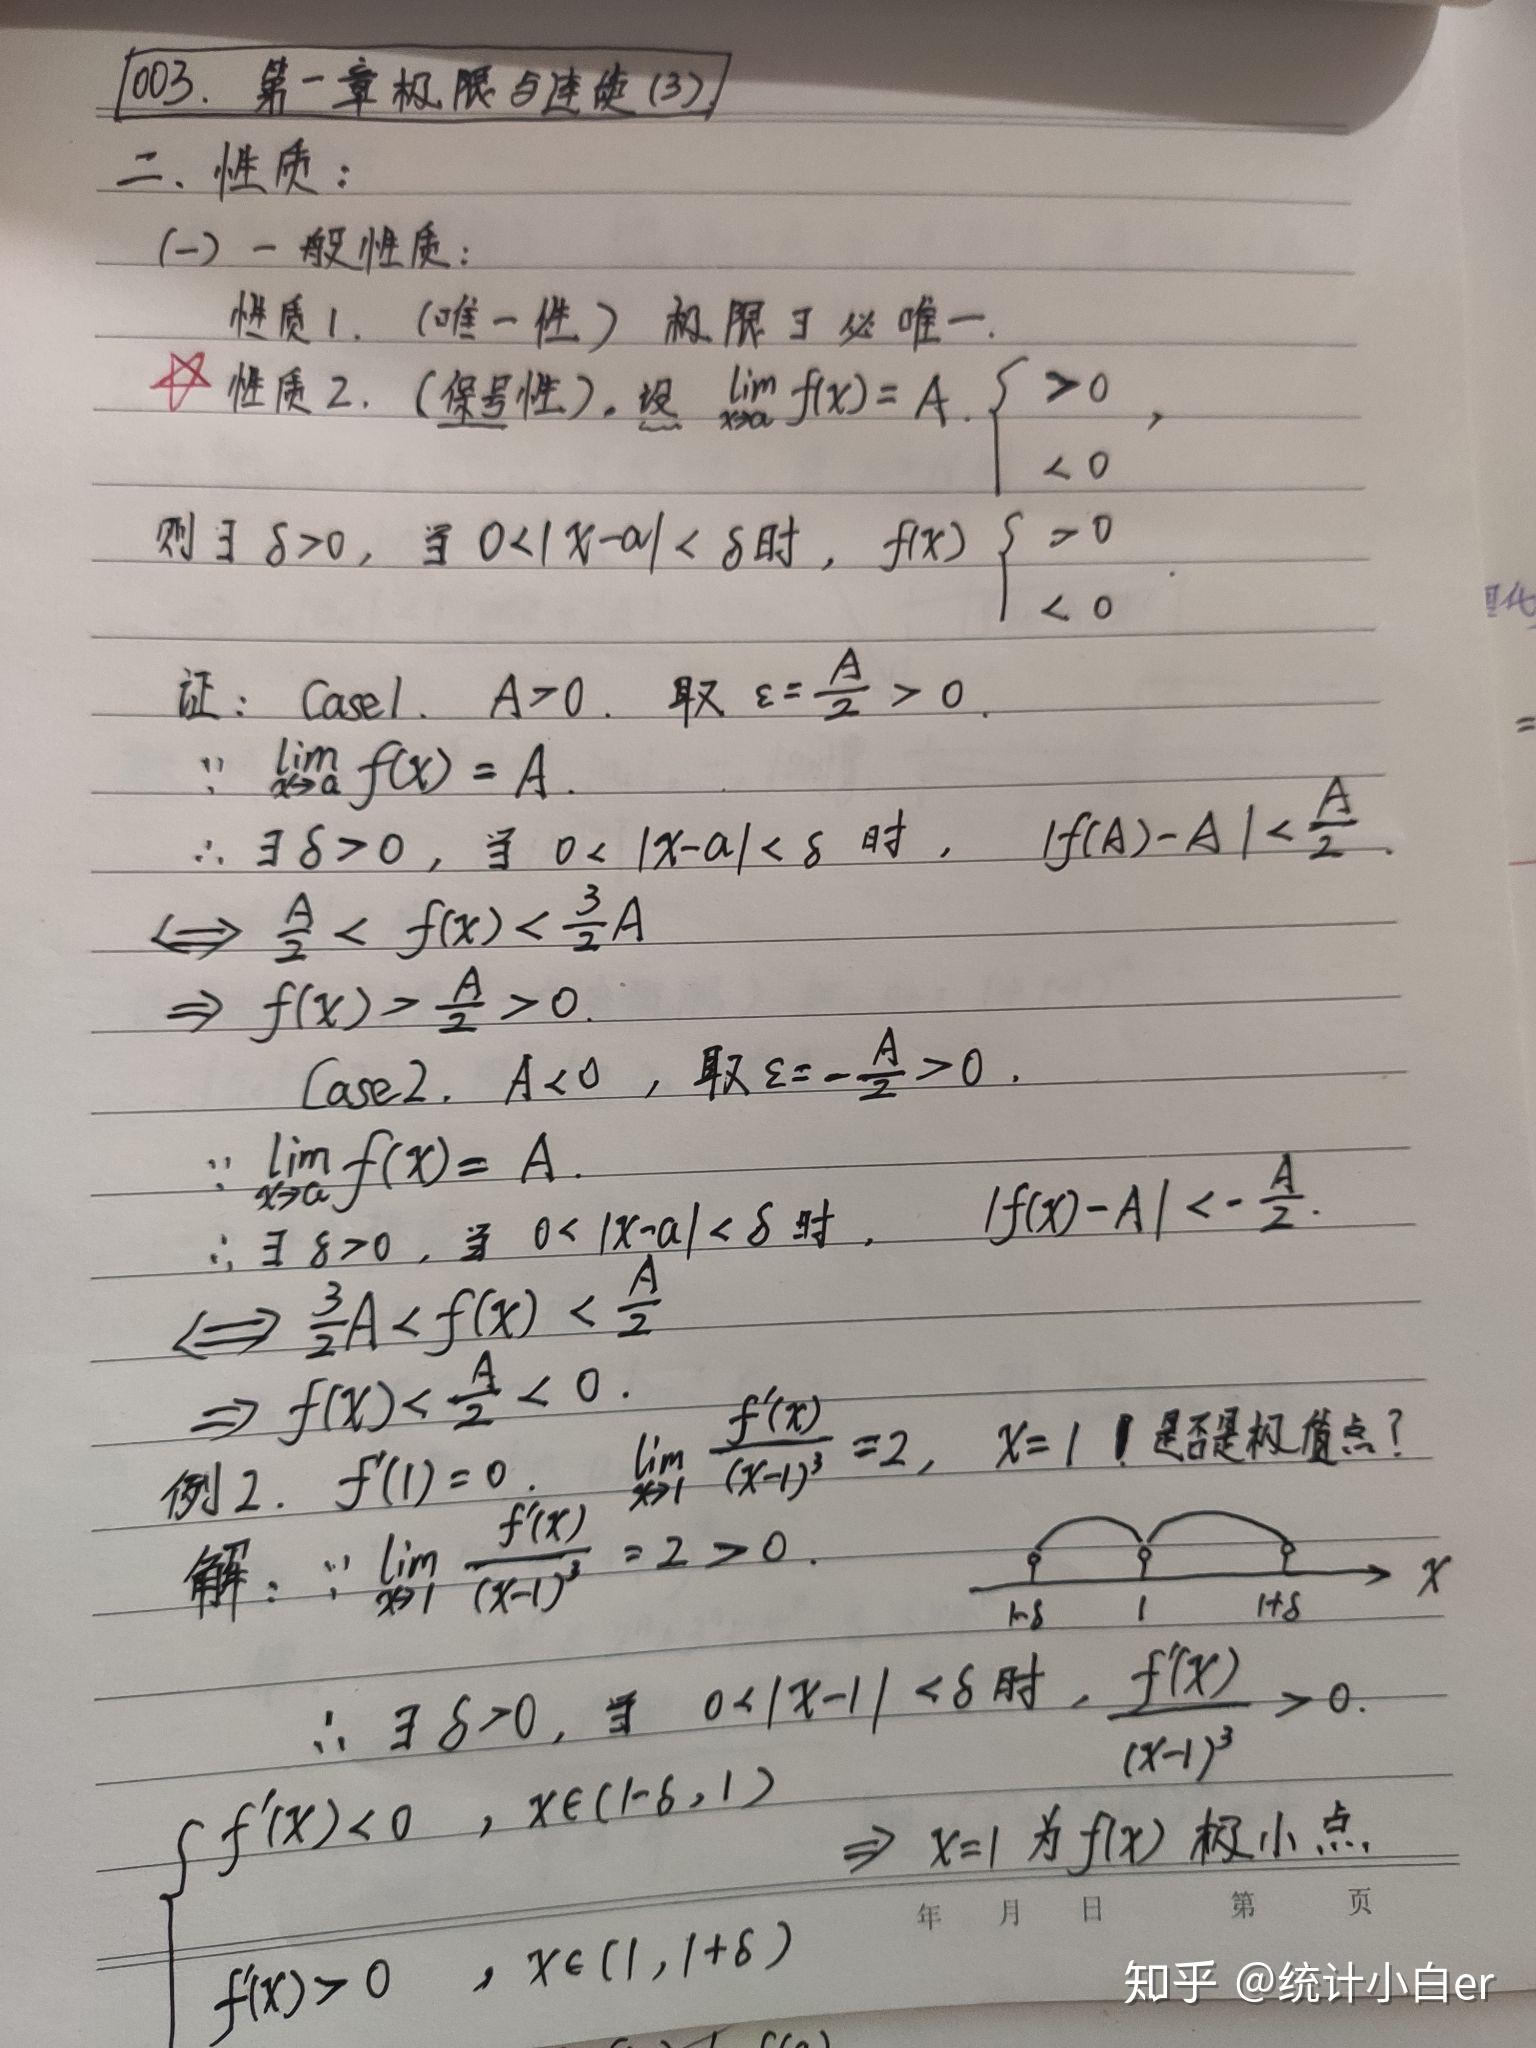 003. 第一章极限与连续(3).
二、性质:
(一) 一般性质:
性质1. (唯一性) 极限∃必唯一.
☆ 性质2. (保号性). 设 lim_{x→a} f(x) = A. { >0 , <0
则∃ δ>0, 当 0<|x-a|<δ时, f(x) { >0 <0 .
证: Case1. A>0. 取 ε=A/2 > 0.
∵ lim_{x→a} f(x) = A.
∴ ∃ δ>0, 当 0<|x-a|<δ 时, |f(A)-A|<A/2.
⟺ A/2 < f(x) < 3/2 A
⇒ f(x) > A/2 > 0.
Case2. A<0, 取 ε=-A/2>0.
∵ lim_{x→a} f(x) = A.
∴ ∃ δ>0, 当 0<|x-a|<δ时, |f(x)-A|<-A/2.
⟺ 3/2 A < f(x) < A/2
⇒ f(x) < A/2 < 0.
例2. f'(1)=0. lim_{x→1} f'(x)/(x-1)^3 = 2, x=1 是否是极值点?
解: ∵ lim_{x→1} f'(x)/(x-1)^3 = 2 > 0.
1-δ 1 1+δ x
∴ ∃ δ>0, 当 0<|x-1|<δ时, f'(x)/(x-1)^3 > 0.
{ f'(x)<0 , x∈(1-δ,1)
⇒ x=1 为 f(x) 极小点.
f'(x)>0 , x∈(1,1+δ)
年 月 日 第 页
知乎 @统计小白er